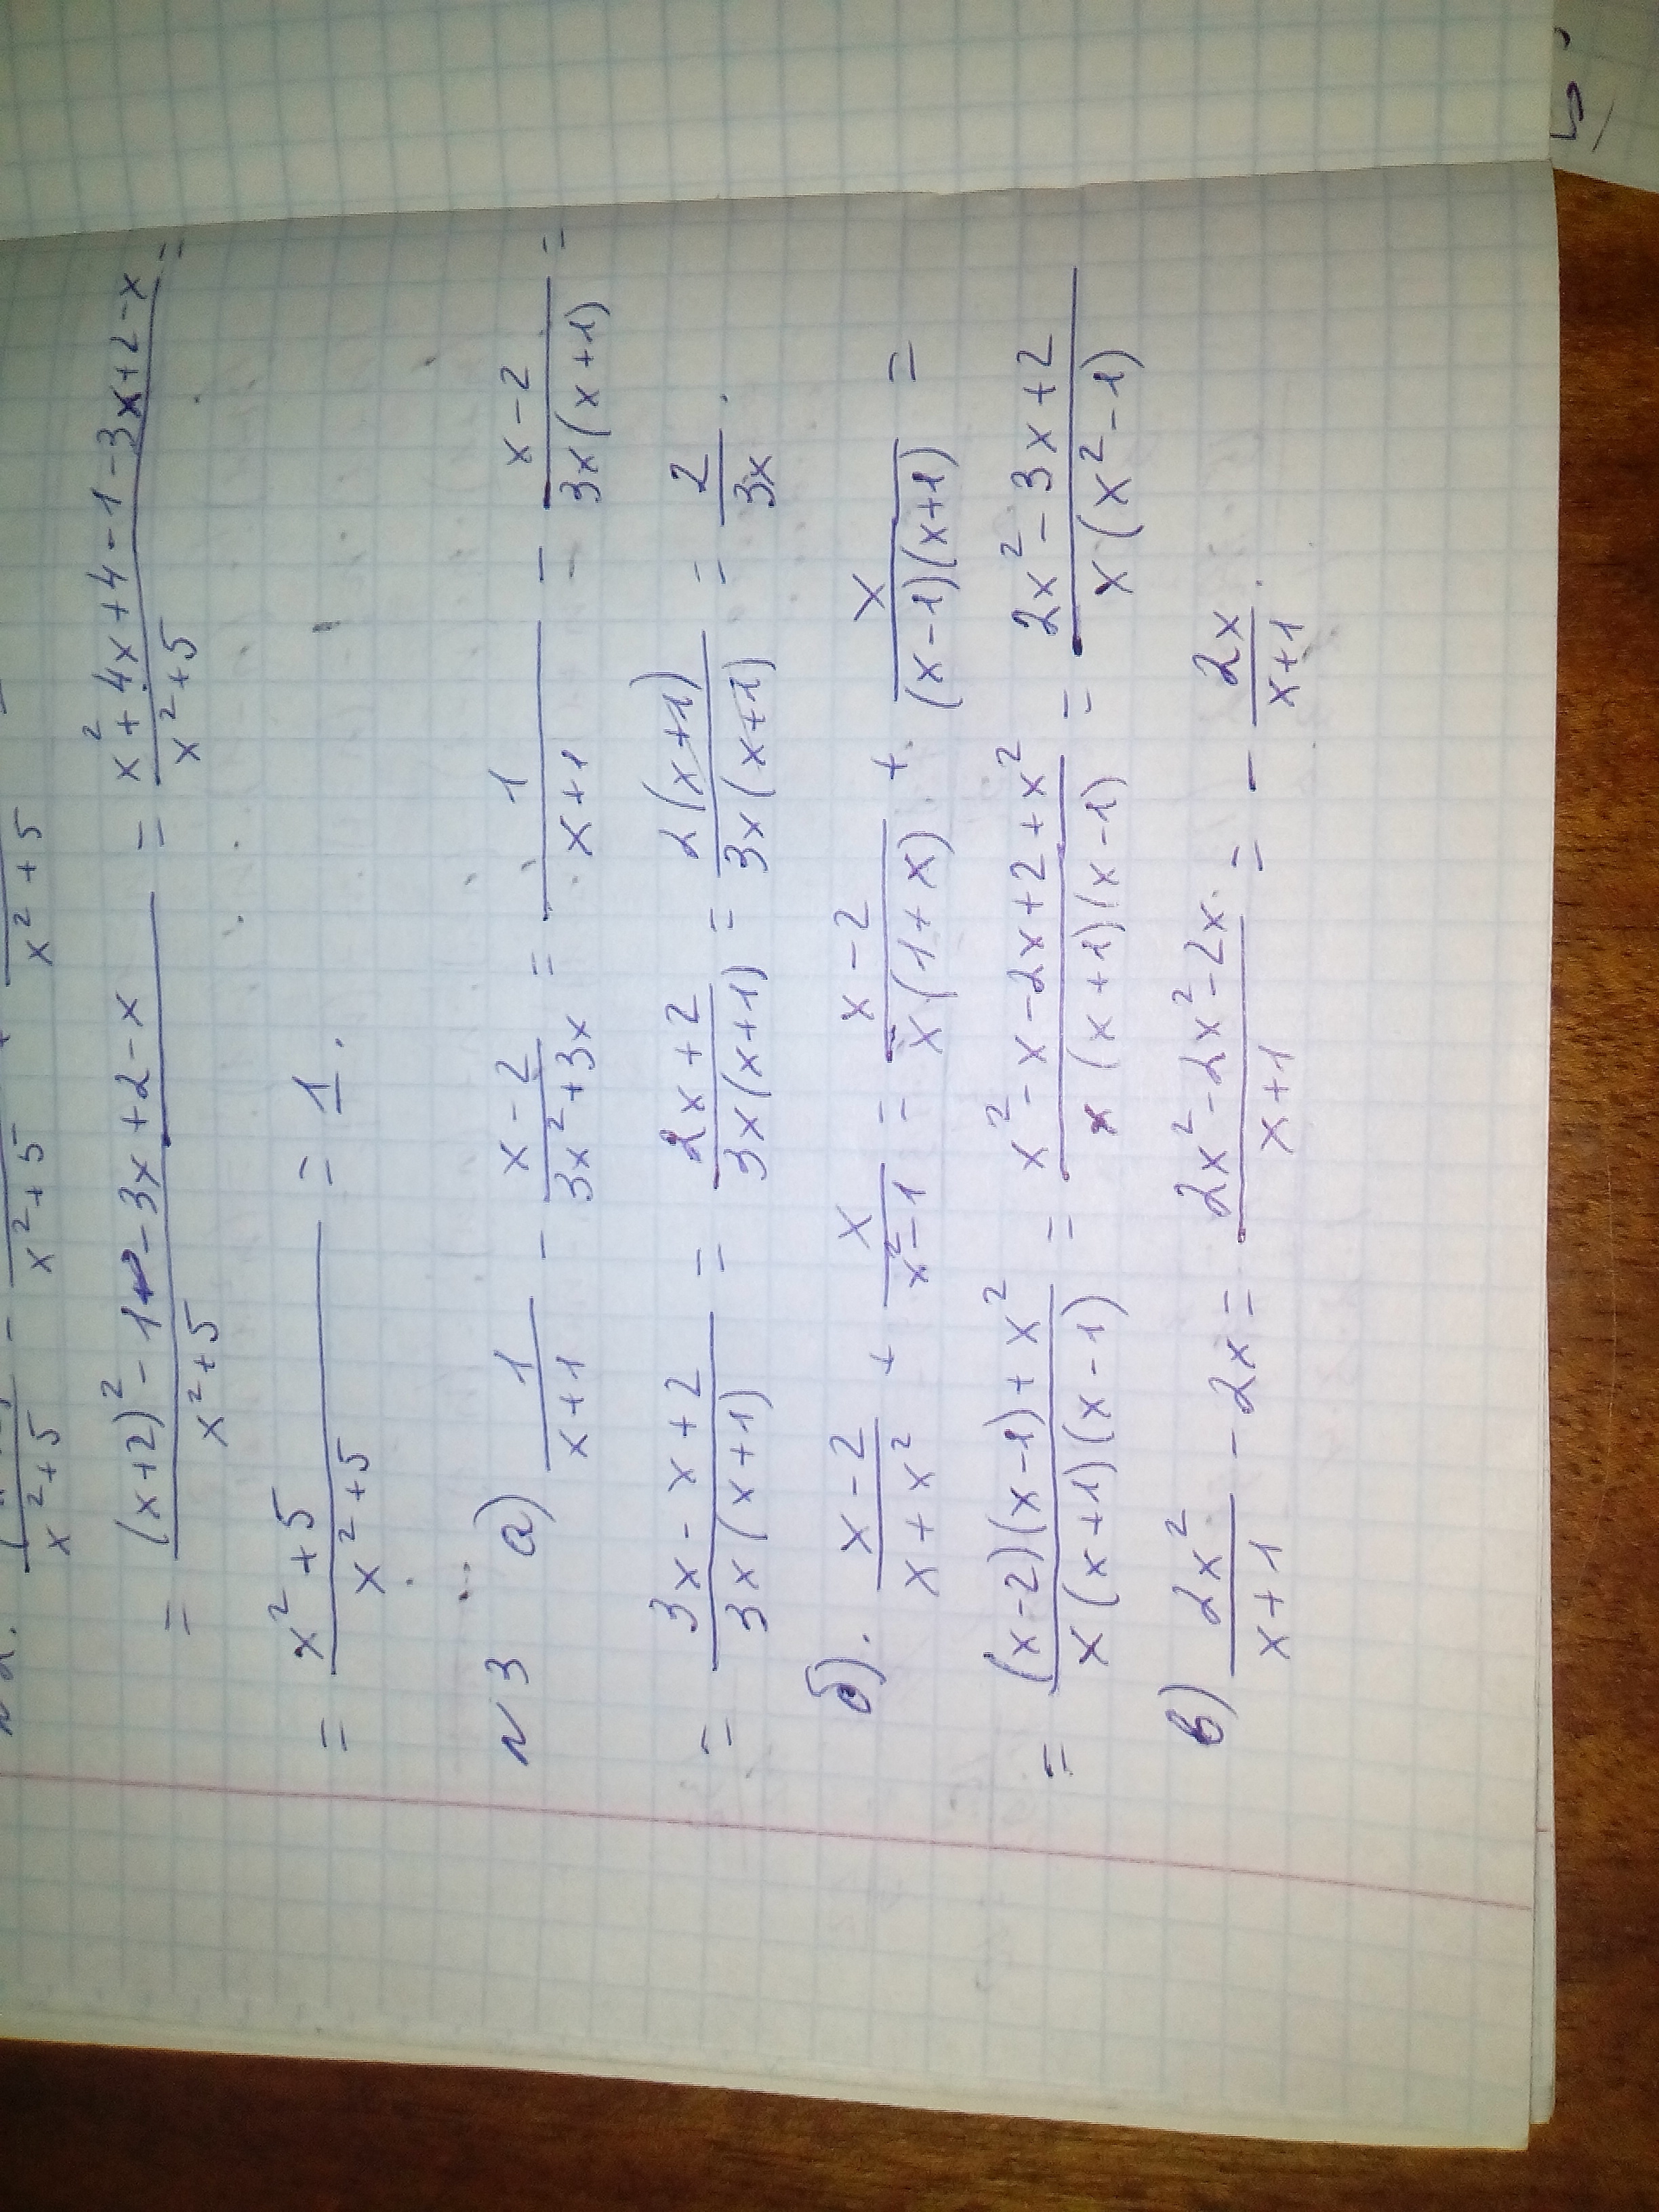 x² + 5 x² + 5 x² + 5
= ((x+2)² - 1 - 3x + 2 - x)/(x² + 5) = (x² + 4x + 4 - 1 - 3x + 2 - x)/(x² + 5) =
= (x² + 5)/(x² + 5) = 1.
N 3 а) 1/(x + 1) - (x - 2)/(3x² + 3x) = 1/(x + 1) - (x - 2)/(3x(x + 1)) =
= (3x - x + 2)/(3x(x + 1)) = (2x + 2)/(3x(x + 1)) = 2(x + 1)/(3x(x + 1)) = 2/(3x).
б). (x - 2)/(x + x²) + x/(x² - 1) = (x - 2)/(x(1 + x)) + x/((x - 1)(x + 1)) =
= ((x - 2)(x - 1) + x²)/(x(x + 1)(x - 1)) = (x² - x - 2x + 2 + x²)/(x(x + 1)(x - 1)) = (2x² - 3x + 2)/(x(x² - 1))
в) 2x²/(x + 1) - 2x = (2x² - 2x² - 2x)/(x + 1) = - 2x/(x + 1).